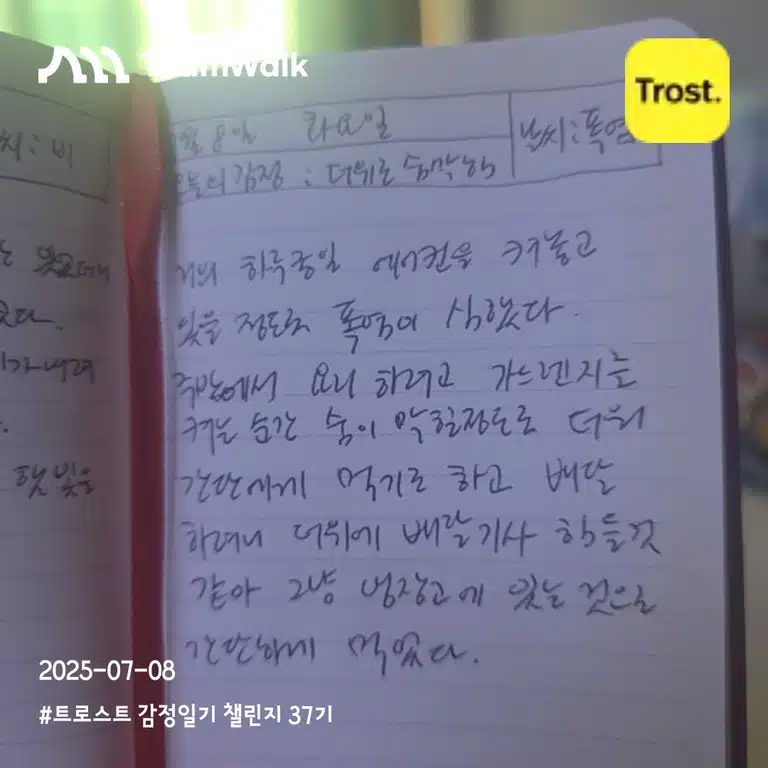 Teamwalk
Trost.
7월 8일 화요일
날씨:폭염
오늘의 감정 : 더위로 숨막혀
거의 하루종일 에어컨을 켜놓고
있을 정도로 폭염이 심했다.
주방에서 요리 하려고 가스렌지를
켜는 순간 숨이 막힐정도로 더워
간단하게 먹기로 하고 배달
하려니 더위에 배달기사 힘들것
같아 그냥 냉장고에 있는 것으로
간단하게 먹었다.
씨:비
햇빛은
2025-07-08
#트로스트 감정일기 챌린지 37기